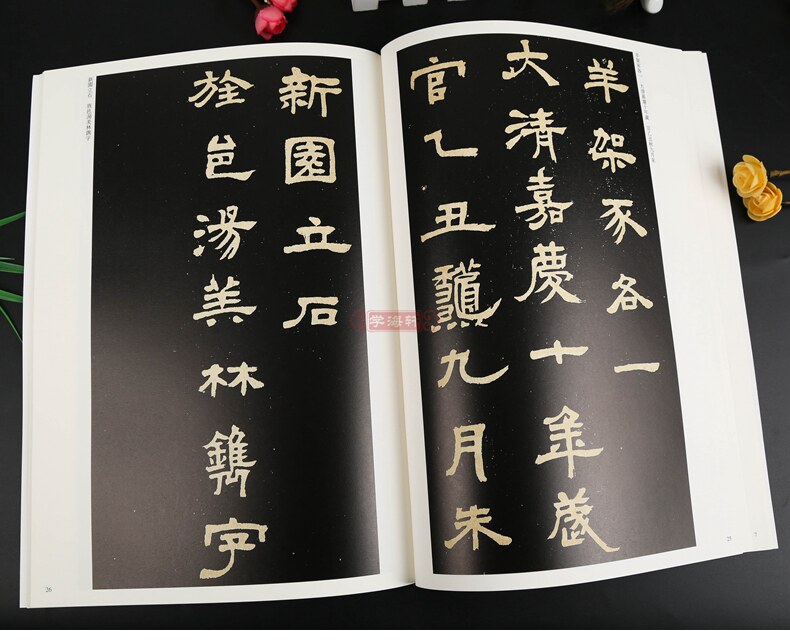 羊架豕各一
大清嘉慶十年歲
官乙丑龝九月朱
25
7
新園立石
旌邑湯美林鐫字
新園立石 旌邑湯美林鐫字
26
学海轩